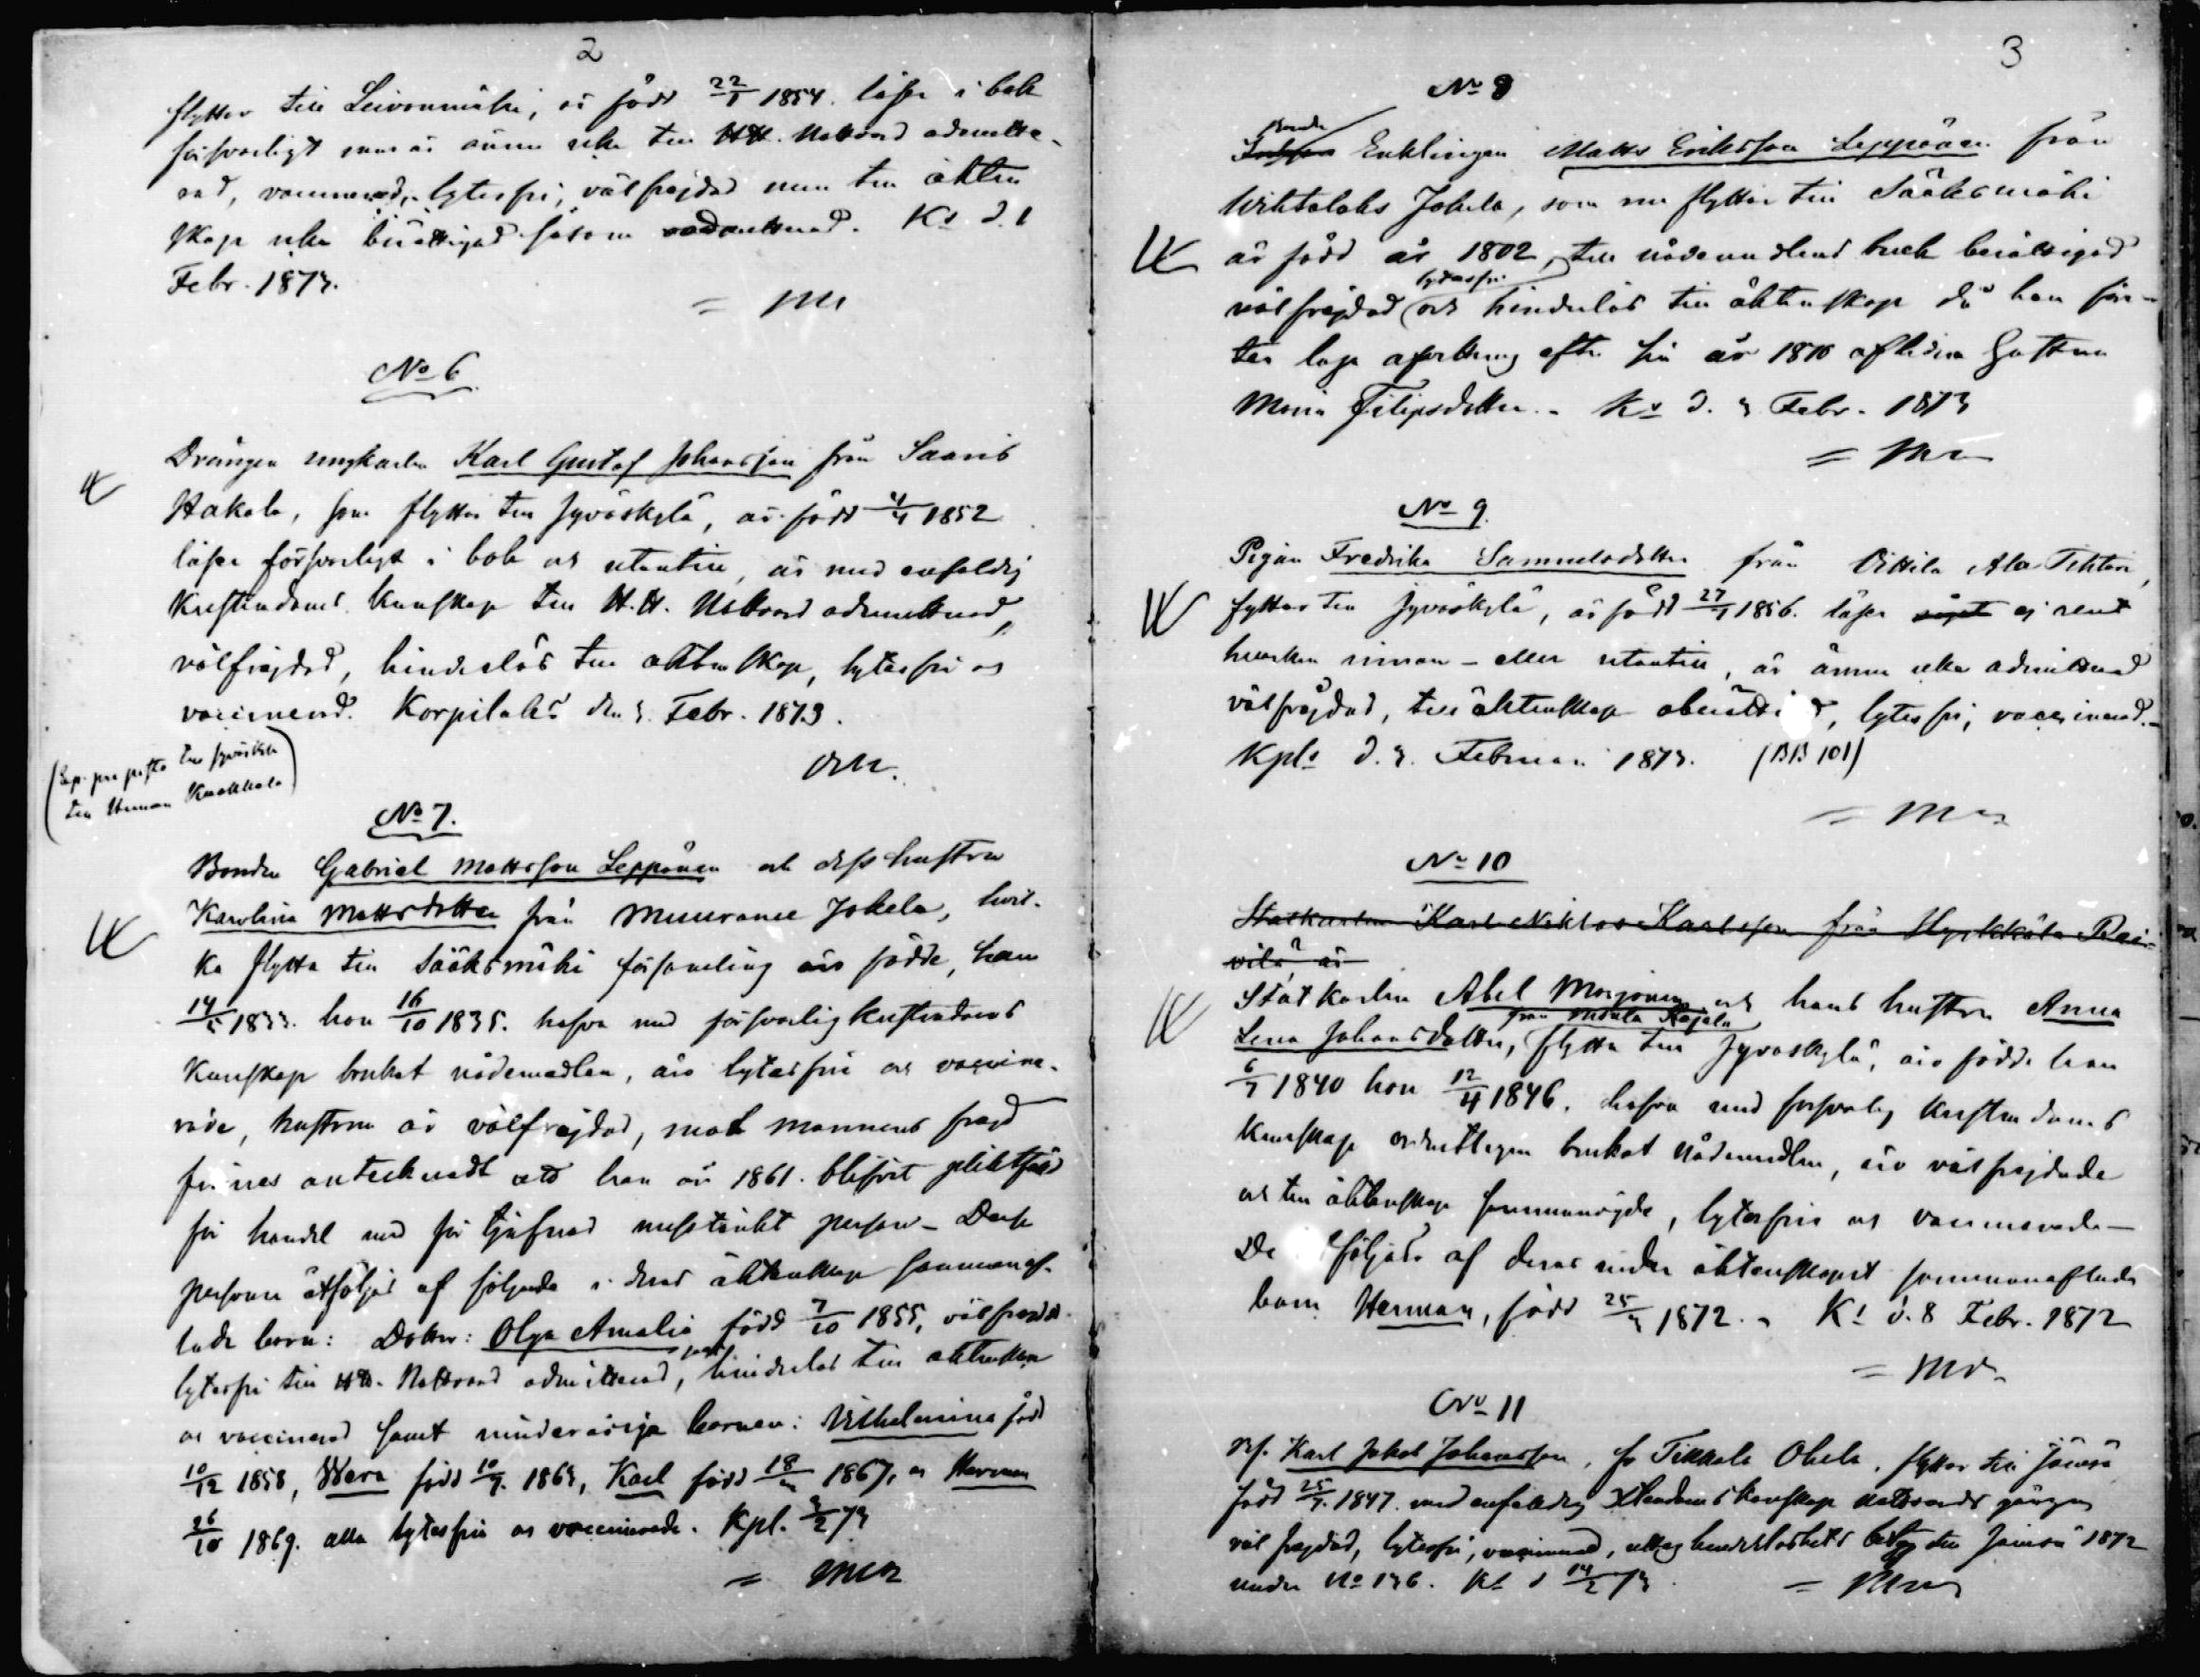 2
flyttar till Leivonmäki, är född 22/1 1854. läser i bok
försvarligt men är ännu icke till H.H. Nattvard admitte-
rad, vaccinerad, lytesfri, välfrejdad men till äkten
skap icke berättigad såsom oadmitterad. Ks d. 1
Febr. 1873.
= Mr
No 6
Drängen ungkarlen Karl Gustaf Johansson från Saaris
Hakala, som flyttar till Jyväskylä, är född 4/4 1852
läser försvarligt i bok och utantill, är med enfaldig
kristendoms kunskap till H.H. Nattvard admitterad,
välfrejdad, hinderslös till äktenskap, lytesfri och
vaccinerad. Korpilaks den 3. Febr. 1873.
till Herman Kuokkala)
No 7.
Bonden Gabriel Mattsson Leppänen och dess hustru
Karolina Mattsdotter från Muurame Jokela, hvil-
ka flytta till Sääksmäki församling äro födde, han
14/5 1833. hon 16/10 1835. hafva med försvarlig kristendoms
kunskap brukat nådemedlen, äro lytesfri och vaccine-
rade, hustrun är välfrejdad, mot mannens frejd
finnes antecknadt att han år 1861. blifvit pliktfäld
för handel med för tjufnad misstänkt person - Desse
personer åtföljas af följande i deras äktenskap sammanaf-
lade barn: Dotter: Olga Amalia född 7/10 1855, välfrejdd
lytesfri till H.H. Nattvard admitterad, hinderslös till äktenskap
och vaccinerad samt minderåriga barnen: Vilhelmina född
10/12 1858, Wera född 10/7. 1863, Karl född 18/ 1867, o Herman
26/10 1869. alla lytesfri och vaccinerade. Kpl. 3/2 73
=
3
No 8
Bonde
Enklingen Matts Eriksson Leppänen från
Wihtalaks Jokela, som nu flyttar till Sääksmäki
är född år 1802, till nådemedlens bruk berättigad
lytesfri
välfrejdad och hinderslös till äktenskap då han före-
ter laga afvittring efter sin år 18 aflidna hustru
Maria Filipsdotter. - Ks d. 3 Febr. 1873
=
No 9.
Pigan Fredrika Samuelsdotter från Vittila Ala-Tiktari,
flyttar till Jyväskylä, är född 27/1 1856. läser ej rent
hvarken innan- eller utantill, är ännu icke admitterad
välfrejdad, till äktenskap oberätti d, lytesfri, vaccinerad.-
Kpls d. 3. Februari 1873. (BB 101)
=
No 10
Statkarlen Karl Niklas Karlsson från Hyrkkälä Rai-
vila är
Statkarlen Abel Marjonen och hans hustru Anna
från Kajala
Lena Johansdotter, flytta till Jyväskylä, äro födde han
6/7 1840 hon 12/4 1846. hafva med försvarlig kristendoms
kunskap ordentligen brukat nådemedlen, äro välfrejdade
och till äktenskap sammanvigde, lytesfria och vaccinerade -
De åtföljas af deras under äktenskapet sammanaflade
barn Herman, född 25/ 1872. - Ks d. 8 Febr. 1872
=
No 11
Karl Jakob Johansson, fr Tikkala Okela, flyttar till Jämsä
född 25/7. 1847. med enfaldig Xtendoms kunskap nattvards gången
väl frejdad, lytesfri, vaccinerad, uttog hinderslöshets betyg till Jämsä 1872
under No 136. Ks d 14/2 73. =